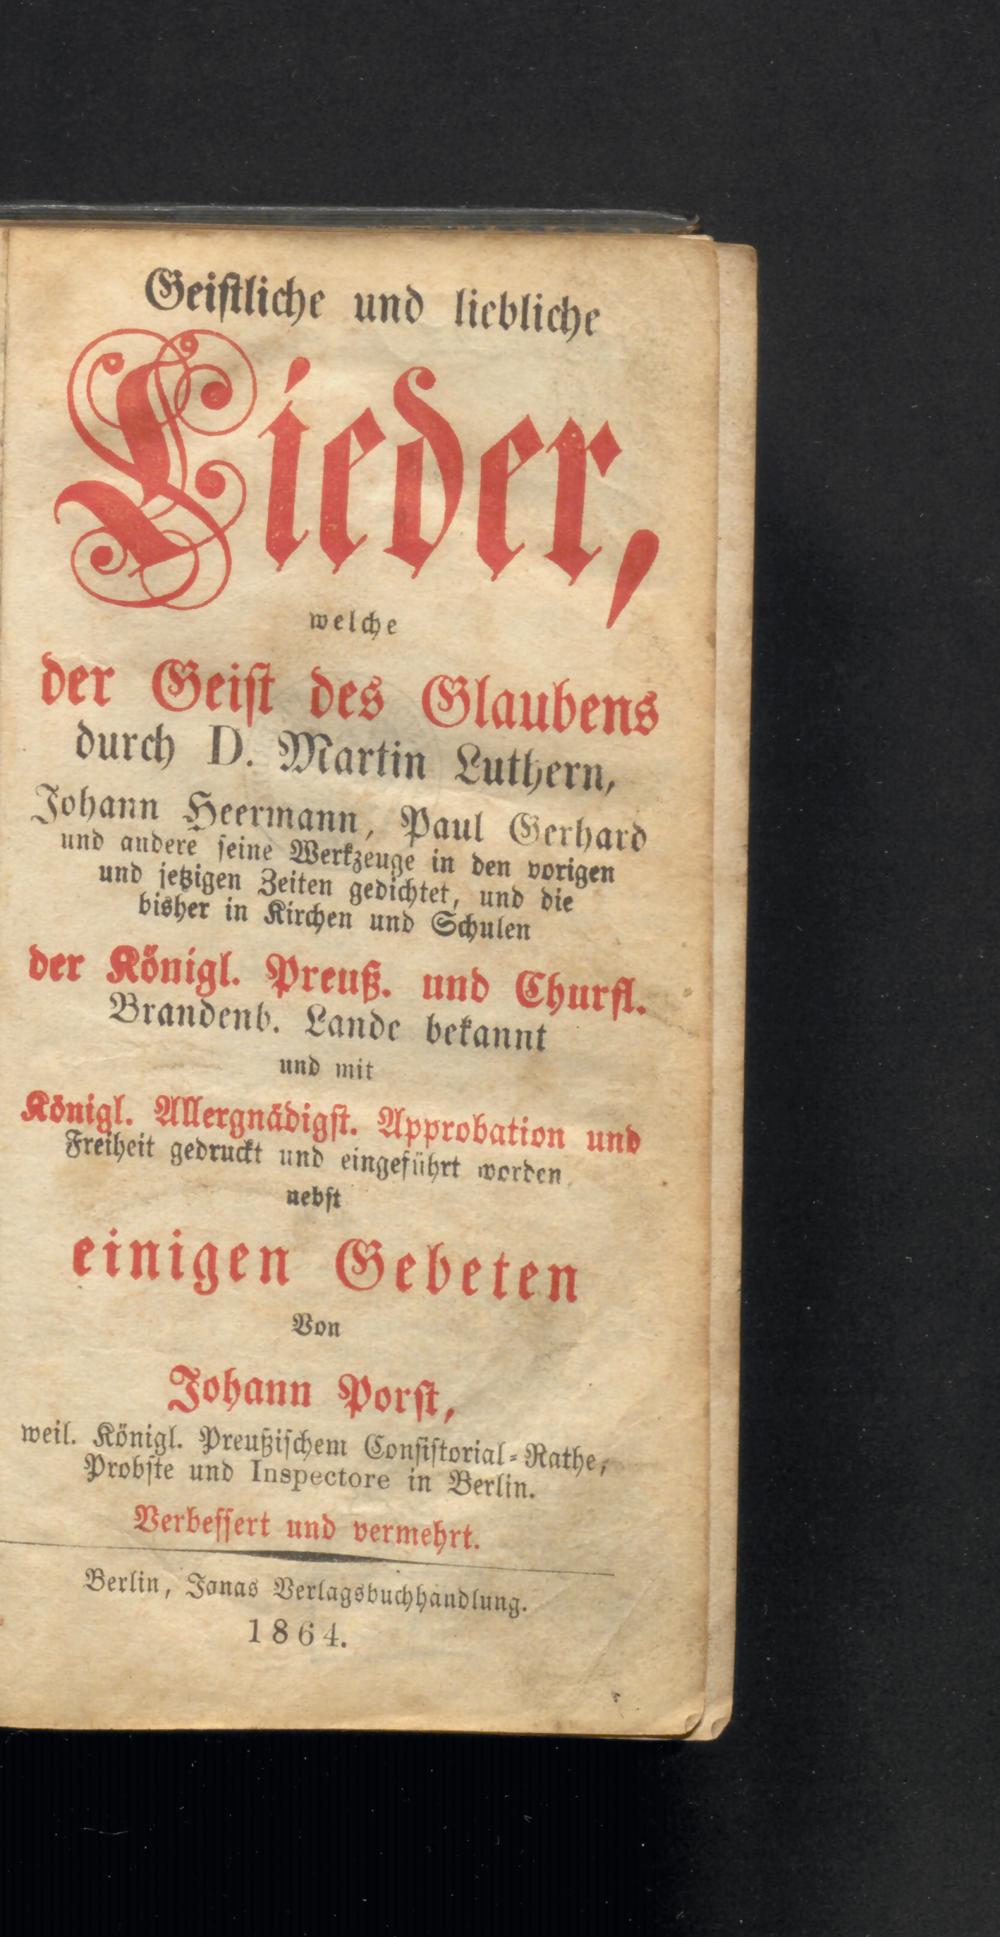 Geistliche und liebliche
Lieder,
welche
der Geist des Glaubens
durch D. Martin Luthern,
Johann Heermann, Paul Gerhard
und andere seine Werkzeuge in den vorigen
und jetzigen Zeiten gedichtet, und die
bisher in Kirchen und Schulen
der Königl. Preuß. und Churfl.
Brandenb. Lande bekannt
und mit
Königl. Allergnädigst. Approbation und
Freiheit gedruckt und eingeführt worden
nebst
einigen Gebeten
Von
Johann Porst,
weil. Königl. Preußischem Consistorial-Rathe,
Probste und Inspectore in Berlin.
Verbessert und vermehrt.
Berlin, Jonas Verlagsbuchhandlung.
1864.